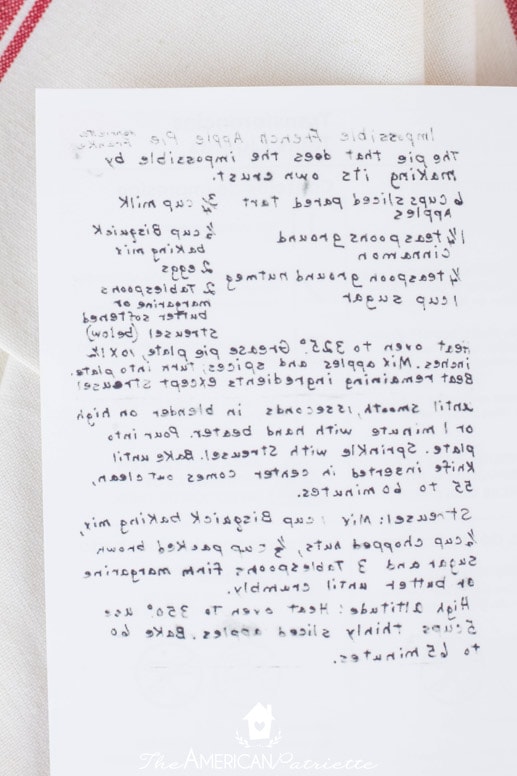 Impossible French Apple Pie
Henrietta
The pie that does the impossible by
making its own crust.
6 cups sliced pared tart
apples
1¼ teaspoons ground
cinnamon
¼ teaspoon ground nutmeg
1 cup sugar
¾ cup milk
½ cup Bisquick
baking mix
2 eggs
2 Tablespoons
margarine or
butter softened
Streusel (below)
Heat oven to 325°. Grease pie plate, 10x1½
inches. Mix apples and spices; turn into plate.
Beat remaining ingredients except Streusel
until smooth, 15 seconds in blender on high
or 1 minute with hand beater. Pour into
plate. Sprinkle with Streusel. Bake until
knife inserted in center comes out clean,
55 to 60 minutes.
Streusel: Mix 1 cup Bisquick baking mix,
½ cup chopped nuts, ⅓ cup packed brown
sugar and 3 Tablespoons firm margarine
or butter until crumbly.
High altitude: Heat oven to 350°. Use
5 cups thinly sliced apples. Bake 60
to 65 minutes.
The AMERICAN Patriette